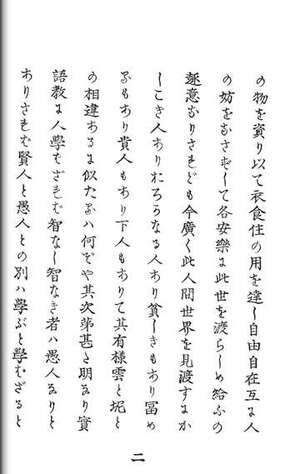 の物を資り以て衣食住の用を達し自由自在互に人
の妨をなさずして各安樂に此世を渡らしめ給ふの
趣意なりされども今廣く此人間世界を見渡すにか
しこき人ありおろかなる人あり貧しきもあり冨め
るもあり貴人もあり下人もありて其有様雲と坭と
の相違あるに似たるハ何ぞや其次第甚だ明なり實
語教に人學ばざれば智なし智なき者ハ愚人なりと
ありされば賢人と愚人との別ハ學ぶと學ばざると
二